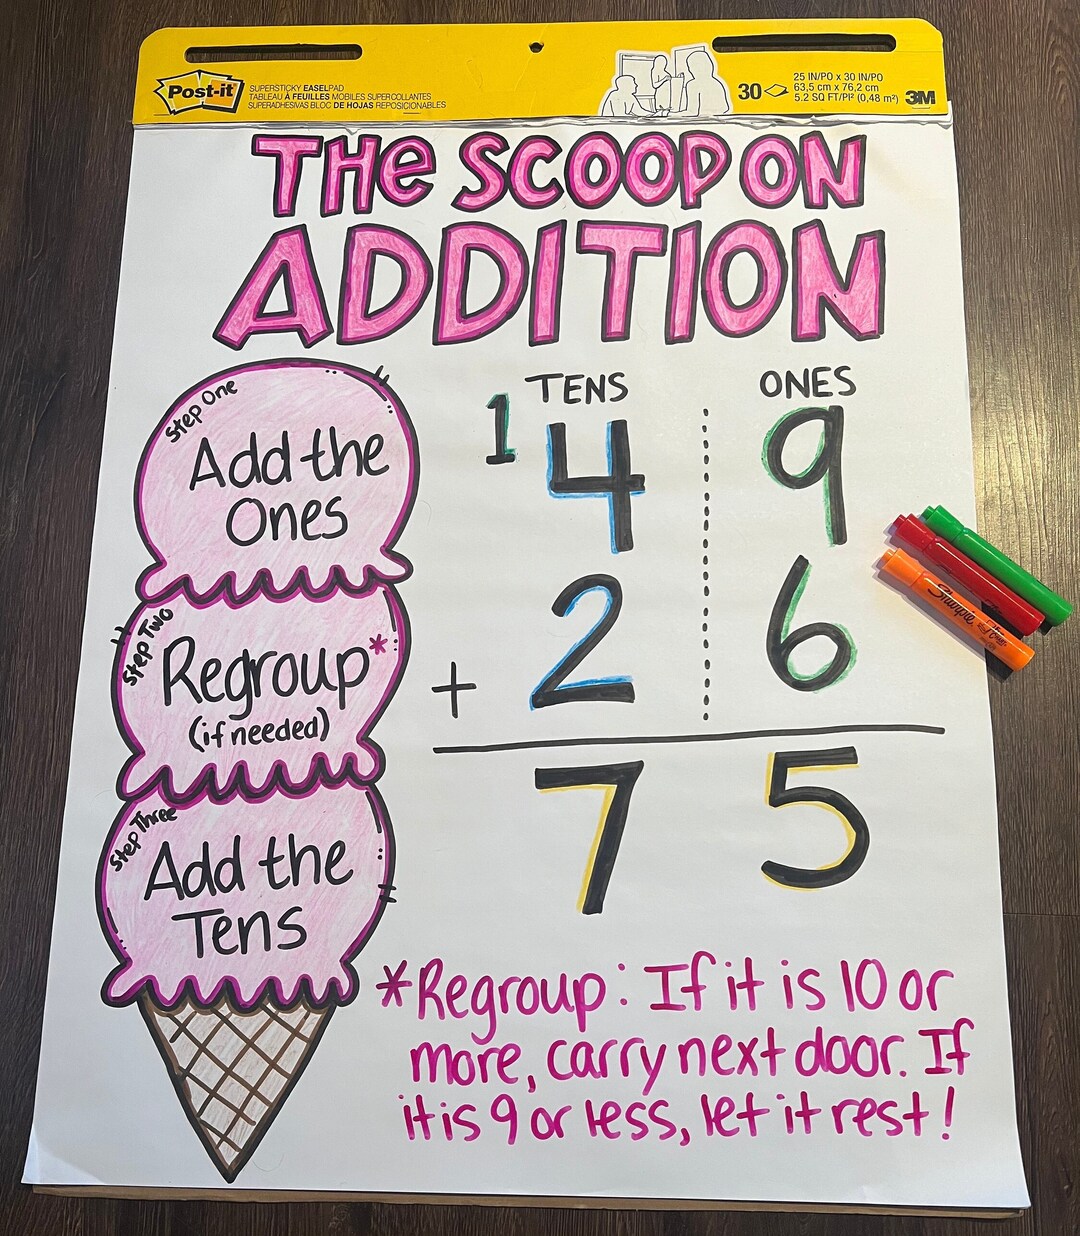 Post-it
SUPERSTICKY EASELPAD
TABLEAU À FEUILLES MOBILES SUPERCOLLANTES
SUPERADHESIVAS BLOC DE HOJAS REPOSICIONABLES
30
25 IN/PO x 30 IN/PO
63,5 cm x 76,2 cm
5.2 SQ FT/PI² (0,48 m²)
3M
THe SCOOP ON
ADDITION
Step One
Add the
Ones
Step Two
Regroup*
(if needed)
Step Three
Add the
Tens
TENS ONES
1 4 9
+ 2 6
7 5
*Regroup: If it is 10 or
more, carry next door. If
it is 9 or less, let it rest!
Sharpie